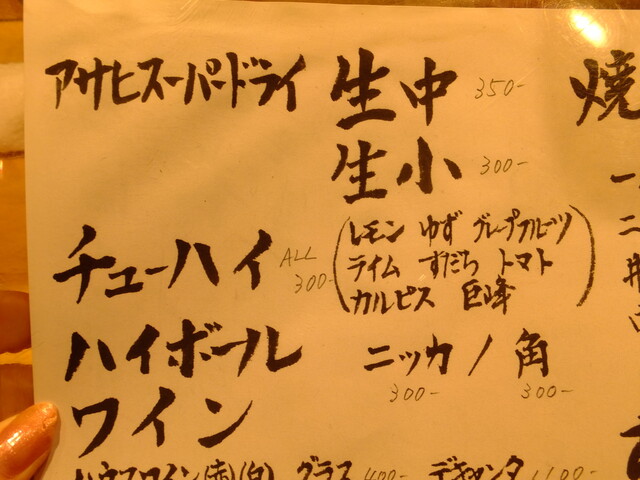 アサヒスーパードライ 生中 350-
生小 300-
チューハイ ALL 300- (レモン ゆず グレープフルーツ
ライム すだち トマト
カルピス 巨峰)
ハイボール ニッカ / 角
300- 300-
ワイン
ハウスワイン(赤)(白) グラス 400- デキャンタ 1100-
焼
一
二